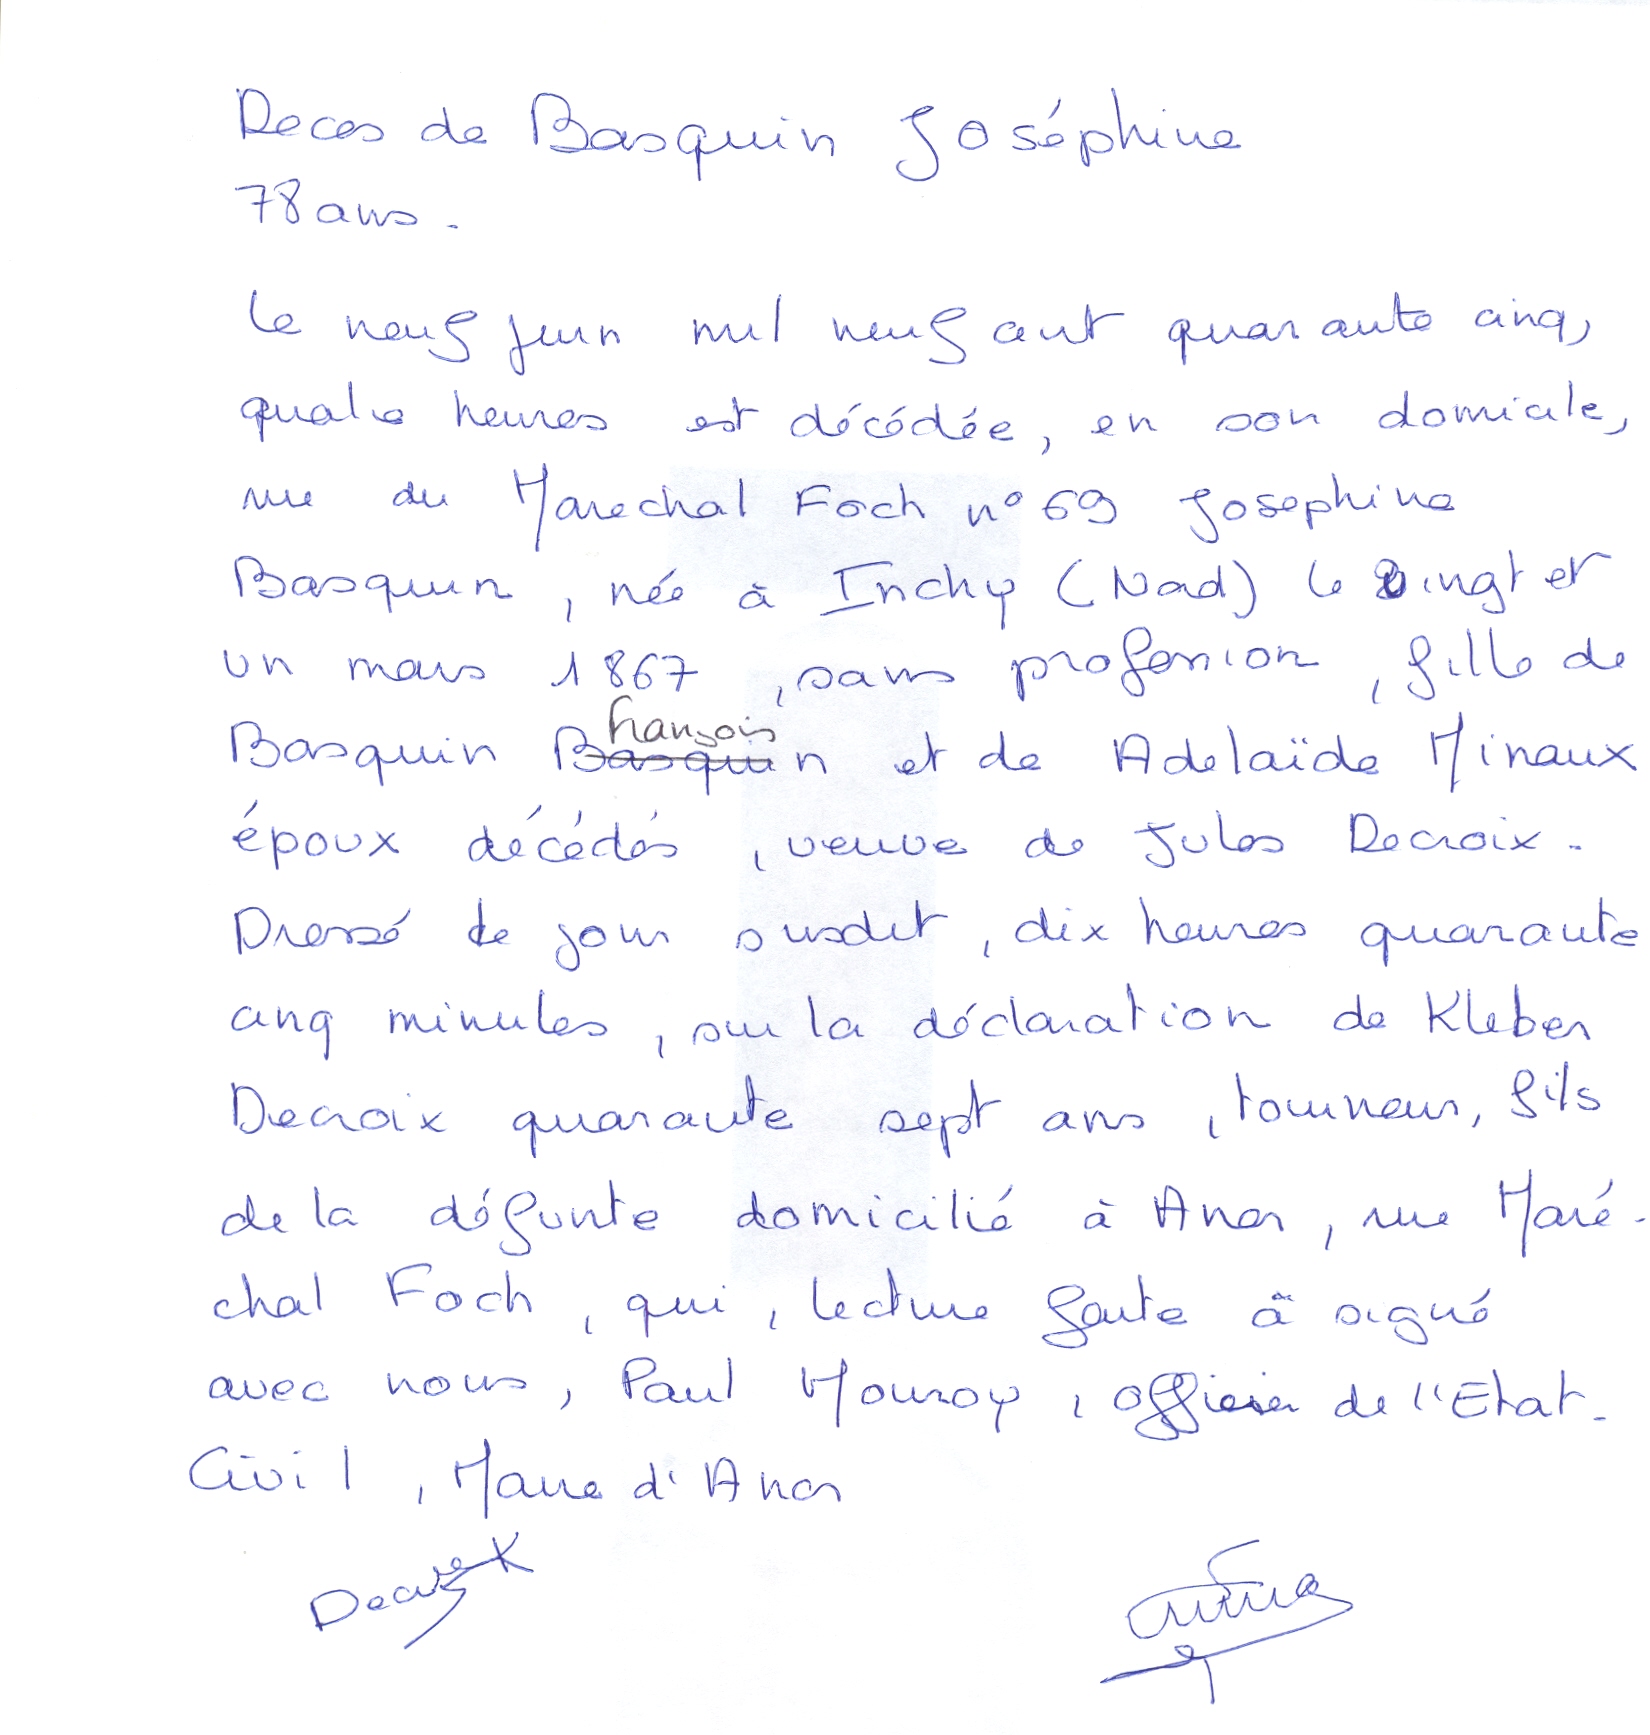 Deces de Basquin Joséphine
78 ans.
Le neuf juin mil neuf cent quarante cinq,
quatre heures est décédée, en son domicile,
rue du Marechal Foch n° 69 Josephine
Basquin, née à Inchy (Nord) le vingt et
un mars 1867, sans profession, fille de
François
Basquin Basquin et de Adelaïde Minaux
époux décédés, veuve de Jules Decroix.
Dressé le jour susdit, dix heures quarante
cinq minutes, sur la déclaration de Kleber
Decroix quarante sept ans, tourneur, fils
de la défunte domicilié à Anor, rue Maré-
chal Foch, qui, lecture faite à signé
avec nous, Paul Mouroy, officier de l'Etat-
Civil, Maire d'Anor